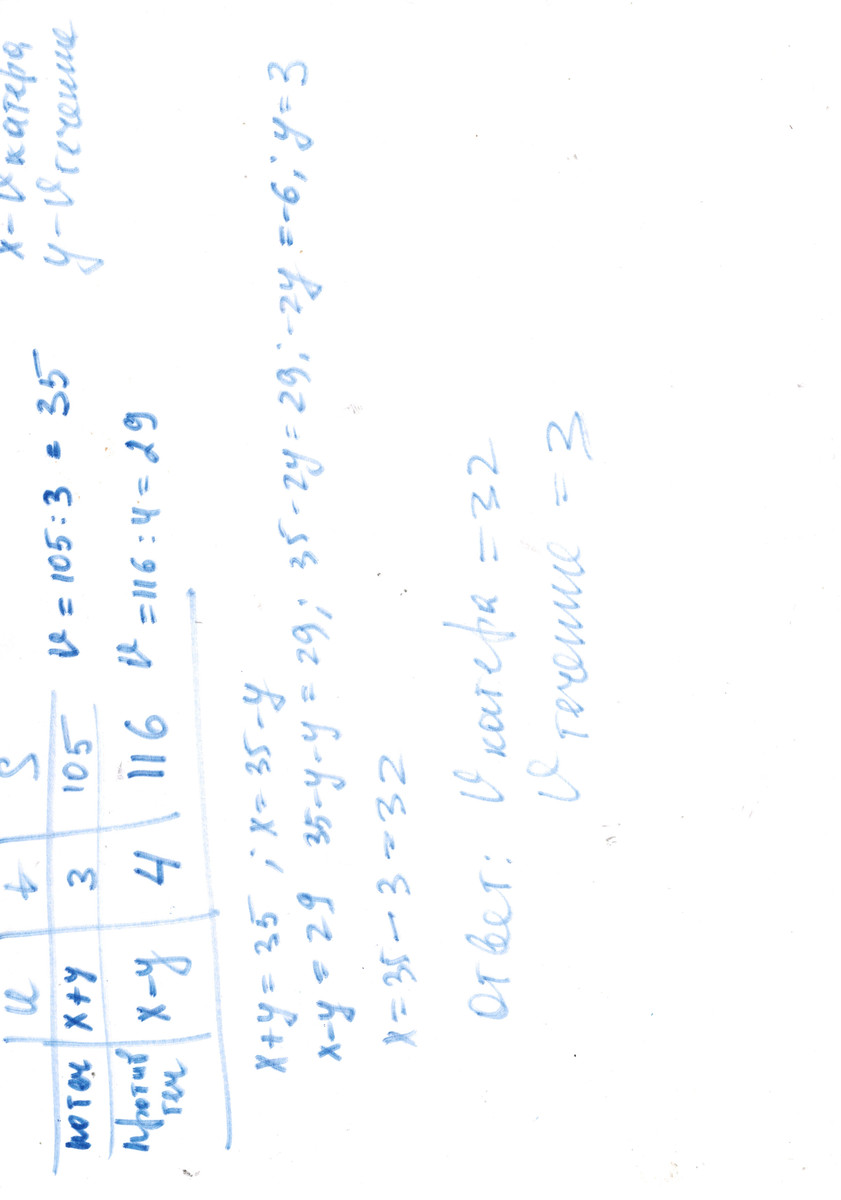 x – v катера
y – v течение
v t S
по теч x+y 3 105 v = 105 : 3 = 35
против теч x–y 4 116 v = 116 : 4 = 29
x+y = 35 ; x = 35 – y
x–y = 29 35–y–y = 29; 35–2y = 29; –2y = –6; y = 3
x = 35 – 3 = 32
Ответ: v катера = 32
v течение = 3